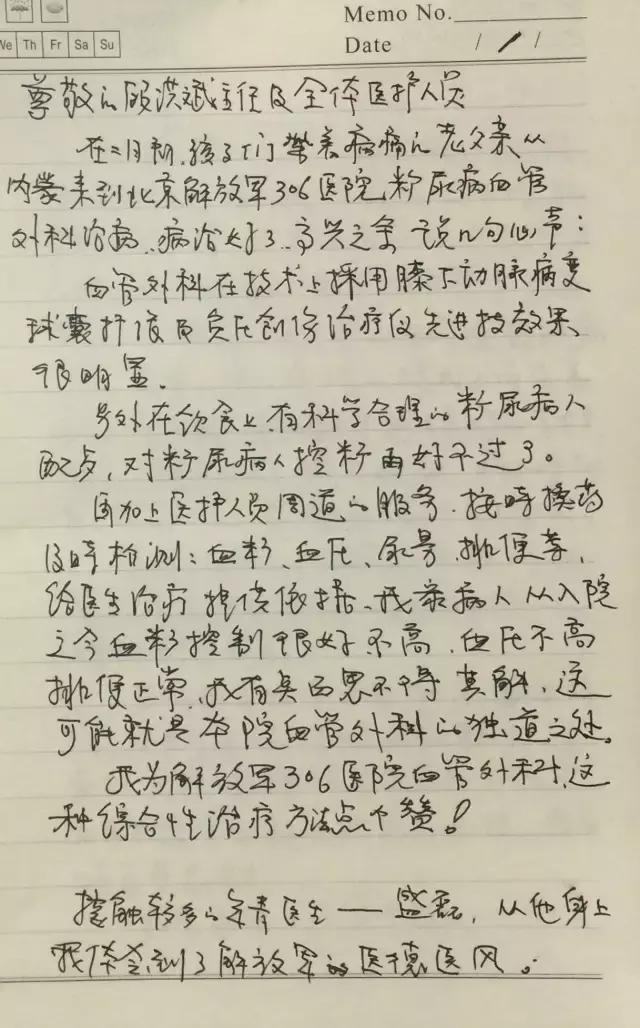 Memo No.
We Th Fr Sa Su
Date / / /
尊敬的顾洪斌主任及全体医护人员
在二月初,孩子们带着病痛的老父亲从
内蒙来到北京解放军306医院,粆尿病血管
外科治病、病治好了、高兴之余 说几句心节:
血管外科在技术上採用膝下动脉病变
球囊扩張及负压创伤治疗仪先进技效果
很明显.
另外在饮食上,有科学合理的粆尿病人
配歺,对粆尿病人控粆再好不过了。
再加上医护人员周道的服务.按時换药
及時检测:血粆、血压、尿量.排便等,
给医生治疗提供依据、我亲病人从入院
之今血粆控制很好不高.血压不高
排便正常.我有臭百思不得其解,这
可能就是本院血管外科的独道之处.
我为解放军306医院血管外科,这
种综合性治疗方法点个赞!
接触较多的年青医生——盛磊,从他身上
我体会到了解放军的医德医风。